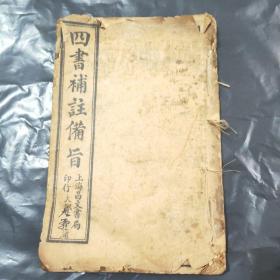 四書補註備旨
上海昌文書局
印行